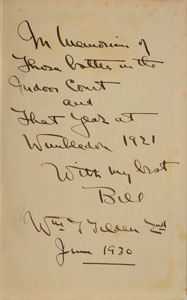 In Memoriam of
Those battles in the
Indoor Court
and
That year at
Wimbledon 1921
With my best
Bill
Wm T Tilden 2nd
June 1930